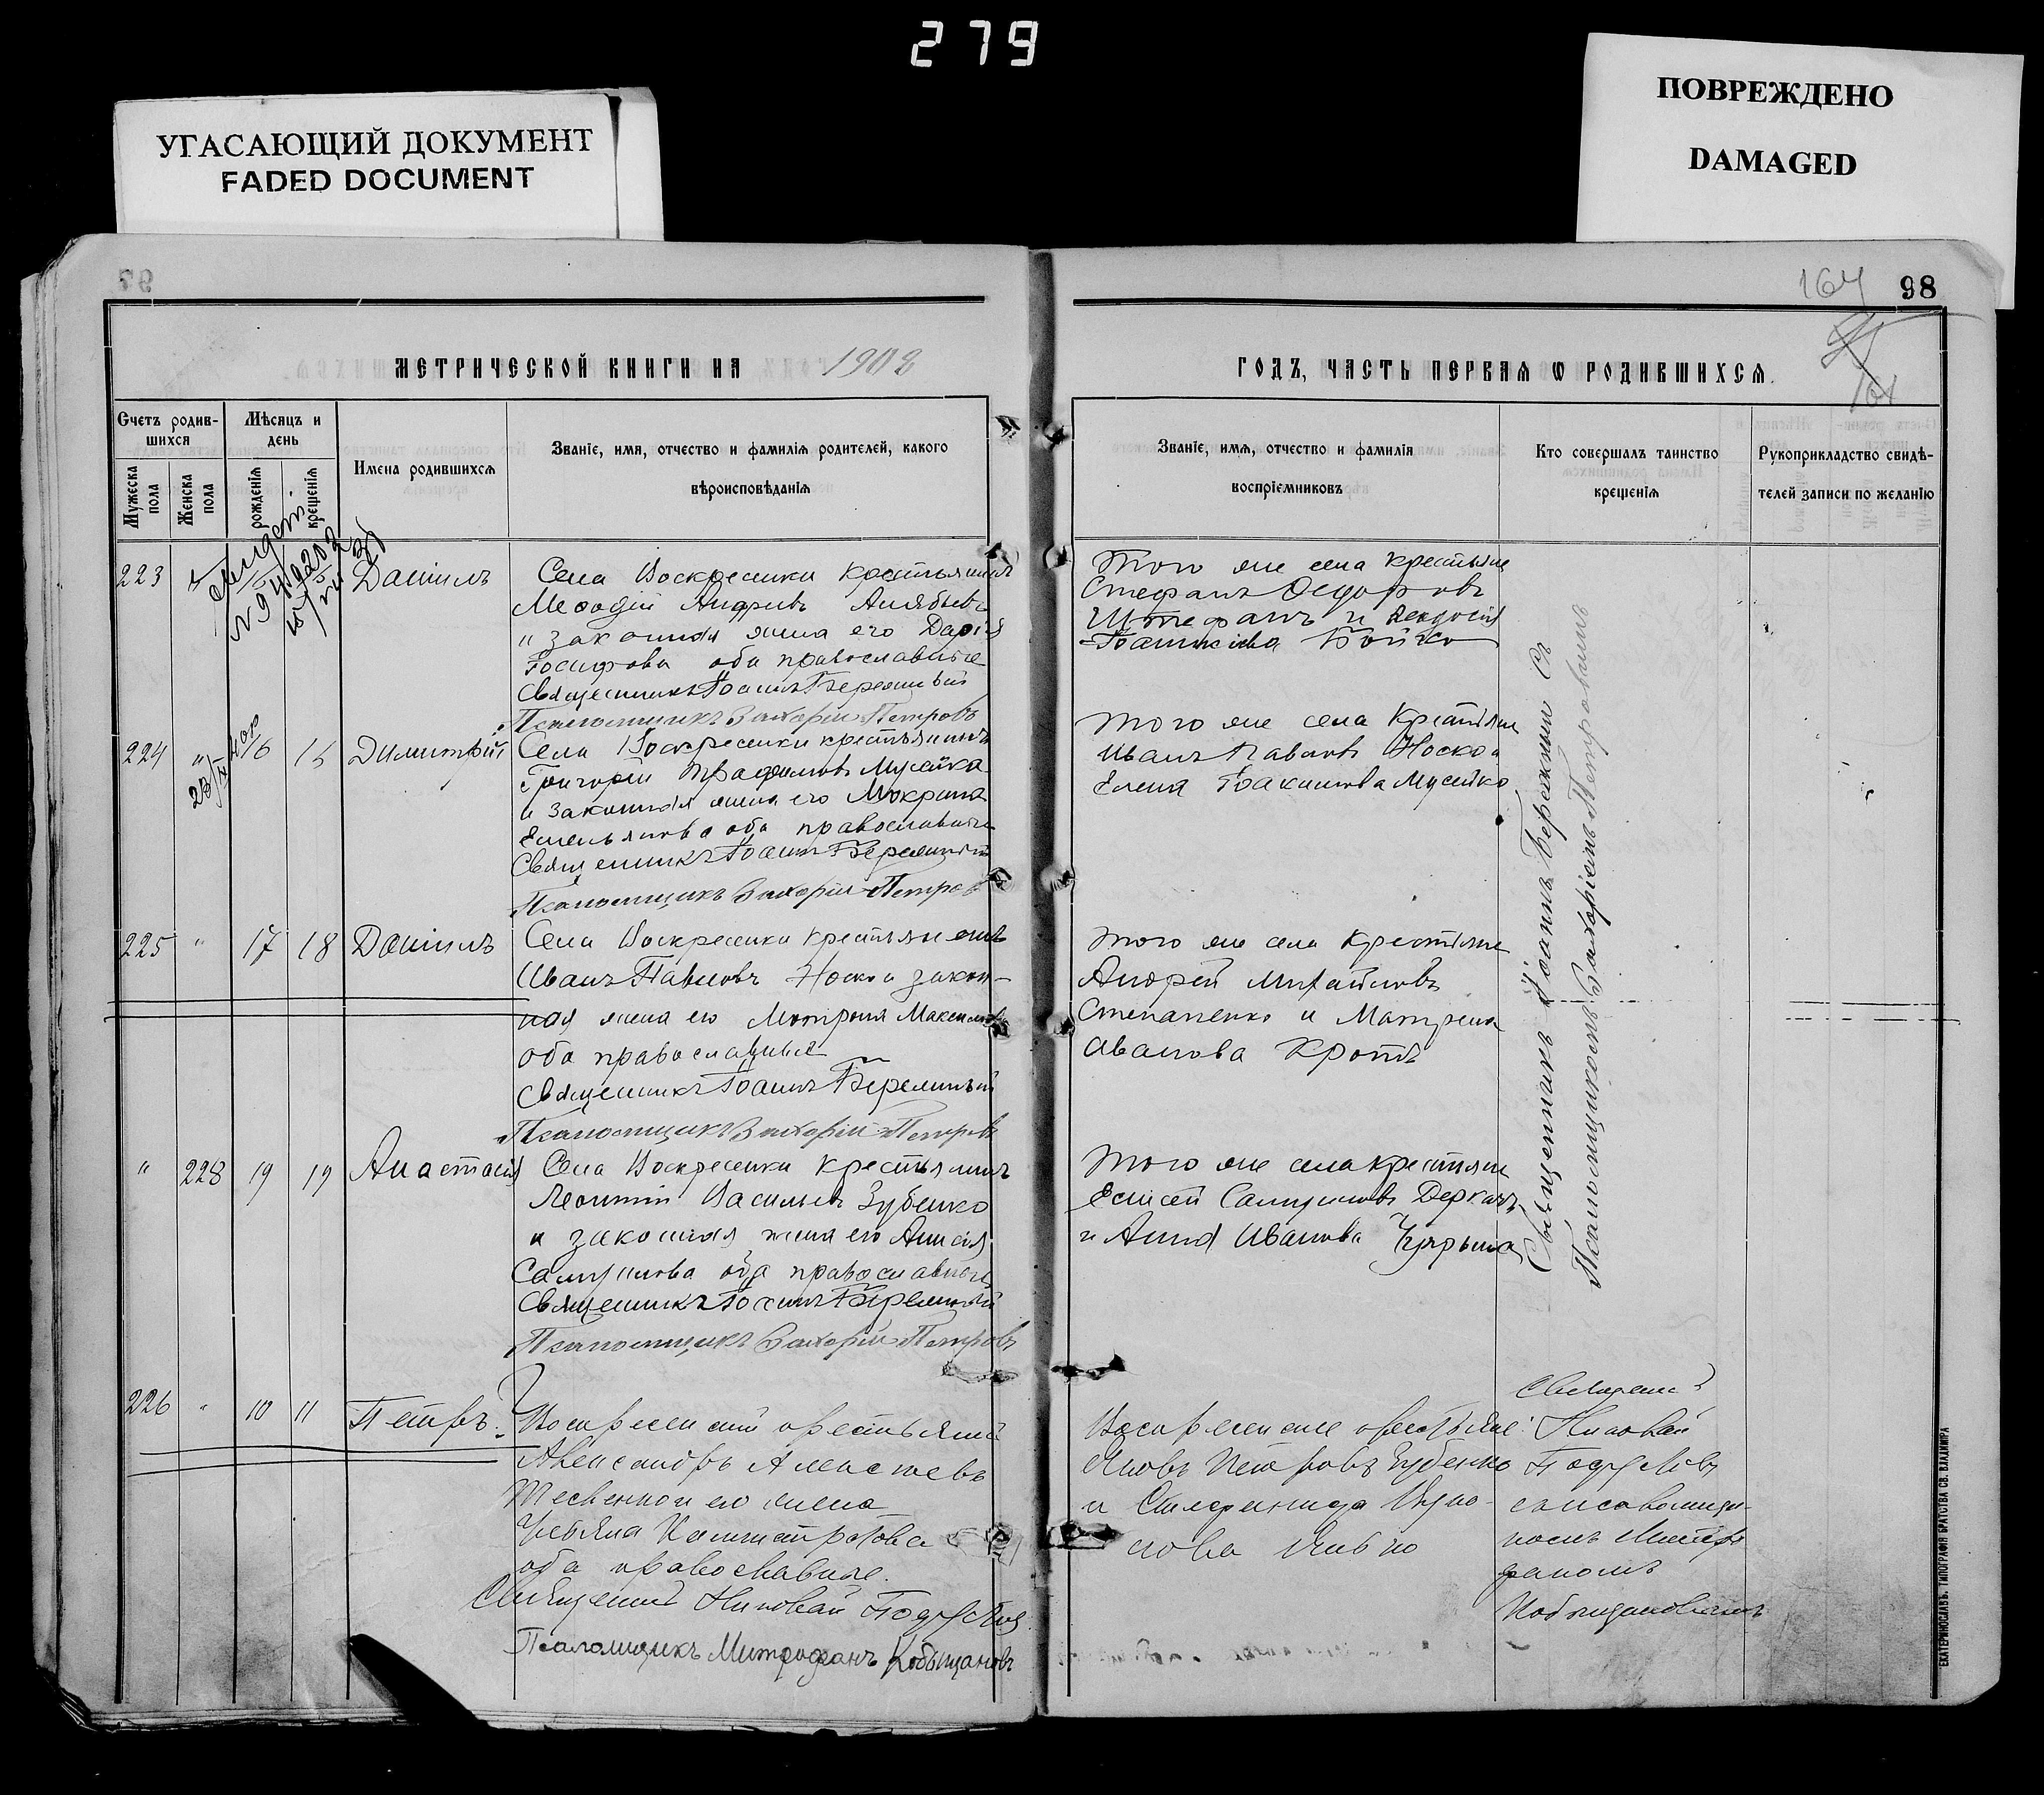 279
УГАСАЮЩИЙ ДОКУМЕНТ
FADED DOCUMENT
ПОВРЕЖДЕНО
DAMAGED
164 98
МЕТРИЧЕСКОЙ КНИГИ НА 1902
ГОДЪ, ЧАСТЬ ПЕРВАЯ Ѡ РОДИВШИХСЯ.
Счетъ родив-
шихся
Мужеска пола
Женска пола
Мѣсяцъ и
день
рожденія
крещенія
Имена родившихся
Званіе, имя, отчество и фамилія родителей, какого
вѣроисповѣданія
Званіе, имя, отчество и фамилія
воспріемниковъ
Кто совершалъ таинство
крещенія
Рукоприкладство свидѣ-
телей записи по желанію
223 Даніилъ
Села Воскресенки крестьянинъ
Меѳодій Андреевъ
и законная жена его Дарія
Іосифова оба православные
Священникъ Іоаннъ Бережный
Псаломщикъ Захарій Петровъ
Того же села крестьяне
Стефанъ Ѳедоровъ
и Ѳеодосія
Бойко
224 " 16 16 Димитрій
Села Воскресенки крестьянинъ
Григорій Мусейко
и законная жена его Макрина
Емельянова оба православные
Священникъ Іоаннъ Бережный
Псаломщикъ Захарій Петровъ
Того же села крестьяне
Иванъ Павловъ Носко и
Елена Іоакимова Мусейко
225 " 17 18 Даніилъ
Села Воскресенки крестьянинъ
Иванъ Павловъ Носко и закон-
ная жена его Матрона Максимова
оба православные
Священникъ Іоаннъ Бережный
Псаломщикъ Захарій Петровъ
Того же села крестьяне
Андрей Михайловъ
Степаненко и Матрена
Иванова Кротъ
" 228 19 19 Анастасія
Села Воскресенки крестьянинъ
Леонтій Васильевъ Зубенко
и законная жена его Анисія
Самуилова оба православные
Священникъ Іоаннъ Бережный
Псаломщикъ Захарій Петровъ
Того же села крестьяне
Елисей Самуиловъ Деркачъ
и Анна Иванова
Священникъ Іоаннъ Бережный съ
Псаломщикомъ Захаріемъ Петровымъ
226 " 10 11 Петръ.
Воскресенскій крестьянинъ
Александръ
его жена
Ульяна
оба православные.
Священникъ
Псаломщикъ Митрофанъ Кобыщановъ
Воскресенские крестьяне
Яковъ Петровъ Зубенко
и
Священникъ
съ псаломщи-
комъ Митро-
фаномъ
Кобыщановымъ
ЕКАТЕРИНОСЛАВЪ. ТИПОГРАФІЯ БРАТСТВА СВ. ВЛАДИМІРА